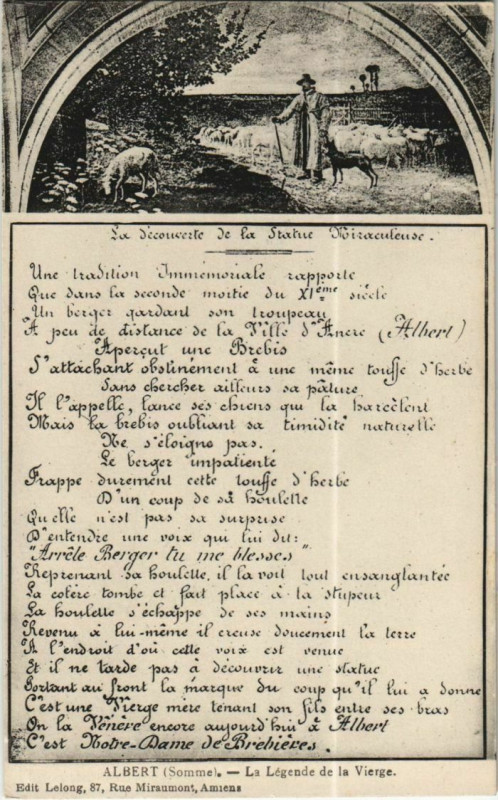 La découverte de la Statue Miraculeuse.
Une tradition Immémoriale rapporte
Que dans la seconde moitié du XIème siècle
Un berger gardant son troupeau
A peu de distance de la Ville d'Ancre (Albert)
Aperçut une Brebis
S'attachant obstinément à une même touffe d'herbe
Sans chercher ailleurs sa pâture
Il l'appelle, lance ses chiens qui la harcèlent
Mais la brebis oubliant sa timidité naturelle
Ne s'éloigne pas.
Le berger impatienté
Frappe durement cette touffe d'herbe
D'un coup de sa houlette
Quelle n'est pas sa surprise
D'entendre une voix qui lui dit:
"Arrête Berger tu me blesses".
Reprenant sa houlette, il la voit tout ensanglantée
La colère tombe et fait place à la stupeur
La houlette s'échappe de ses mains
Revenu à lui-même il creuse doucement la terre
A l'endroit d'où cette voix est venue
Et il ne tarde pas à découvrir une statue
Portant au front la marque du coup qu'il lui a donné
C'est une Vierge mère tenant son fils entre ses bras
On la Vénère encore aujourd'hui à Albert
C'est Notre-Dame de Brebières.
ALBERT (Somme). — La Légende de la Vierge.
Edit Lelong, 87, Rue Miraumont, Amiens